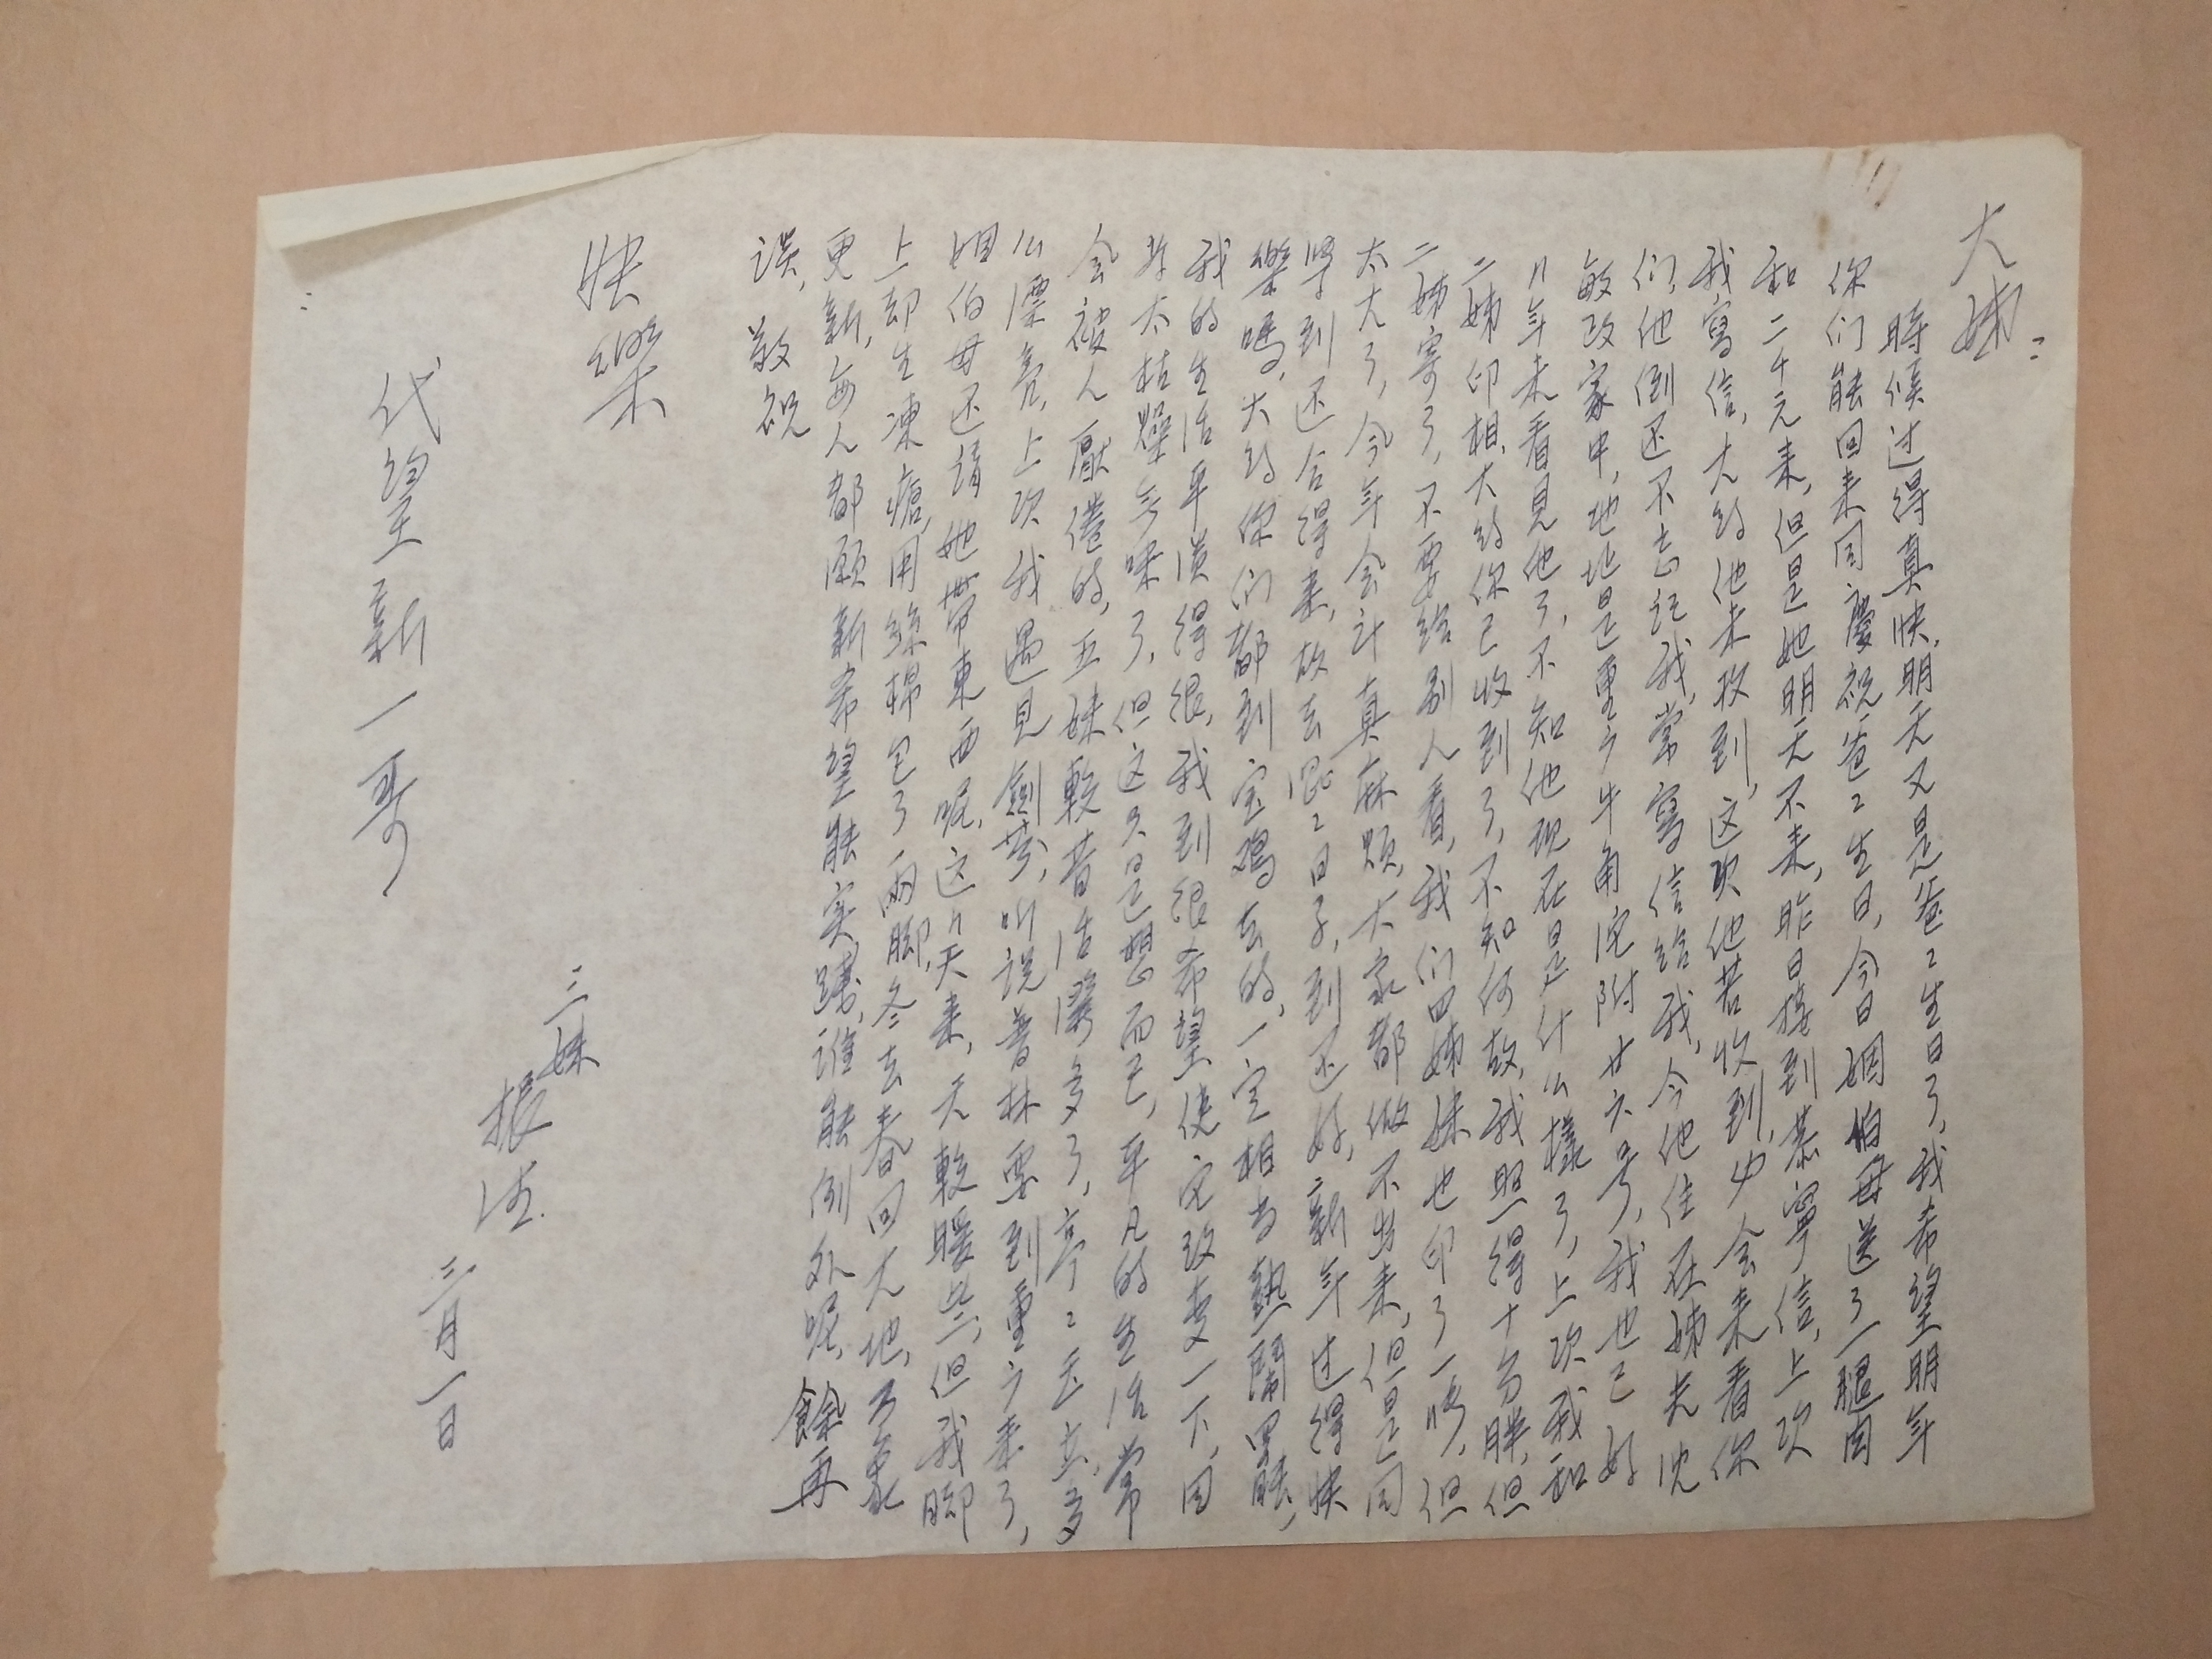 大姊：
時候过得真快，明天又是爸〻生日了，我希望明年
你们能回来同慶祝爸〻生日，今日姻伯母送了一腿肉
和二千元来，但是她明天不来，昨日接到慕寧信，上次
我寫信，大約他未收到，这次他若收到，会来看你
们，他倒还不忘记我，常寫信给我，今他住在姊夫沈
敏政家中，地址是重今牛角沱附廿六号，我也已好
几年未看見他了，不知他现在是什么樣了，上次我和
二姊印相，大約你已收到了，不知何故，我照得十分胖，但
二姊寄了，不要给别人看，我们四姊妹也印了一張，但
太大了，今年会计真麻煩，大家都做不出来，但是同
學到还合得来，故去混〻日子，到还好，新年过得快
樂嗎，大約你们都到宝鷄去的，一定相当熱鬧罷，
我的生活平淡得很，我到很希望使它改变一下，因
为太枯燥無味了，但这只是想而已，平凡的生活常
会被人厭倦的，五妹較昔活潑多了，亭〻玉立，多
么漂亮，上次我遇見劍芬，叫说普林要到重今来了，
姻伯母还请她帶東西呢，这几天来，天較暖些，但我脚
上却生凍瘡，用絲棉包了兩脚，冬去春回大地，万象
更新，每人都願新希望能実踐，谁能例外呢，餘再
谈，敬祝
快樂
三妹
振
三月一日
代望新一哥